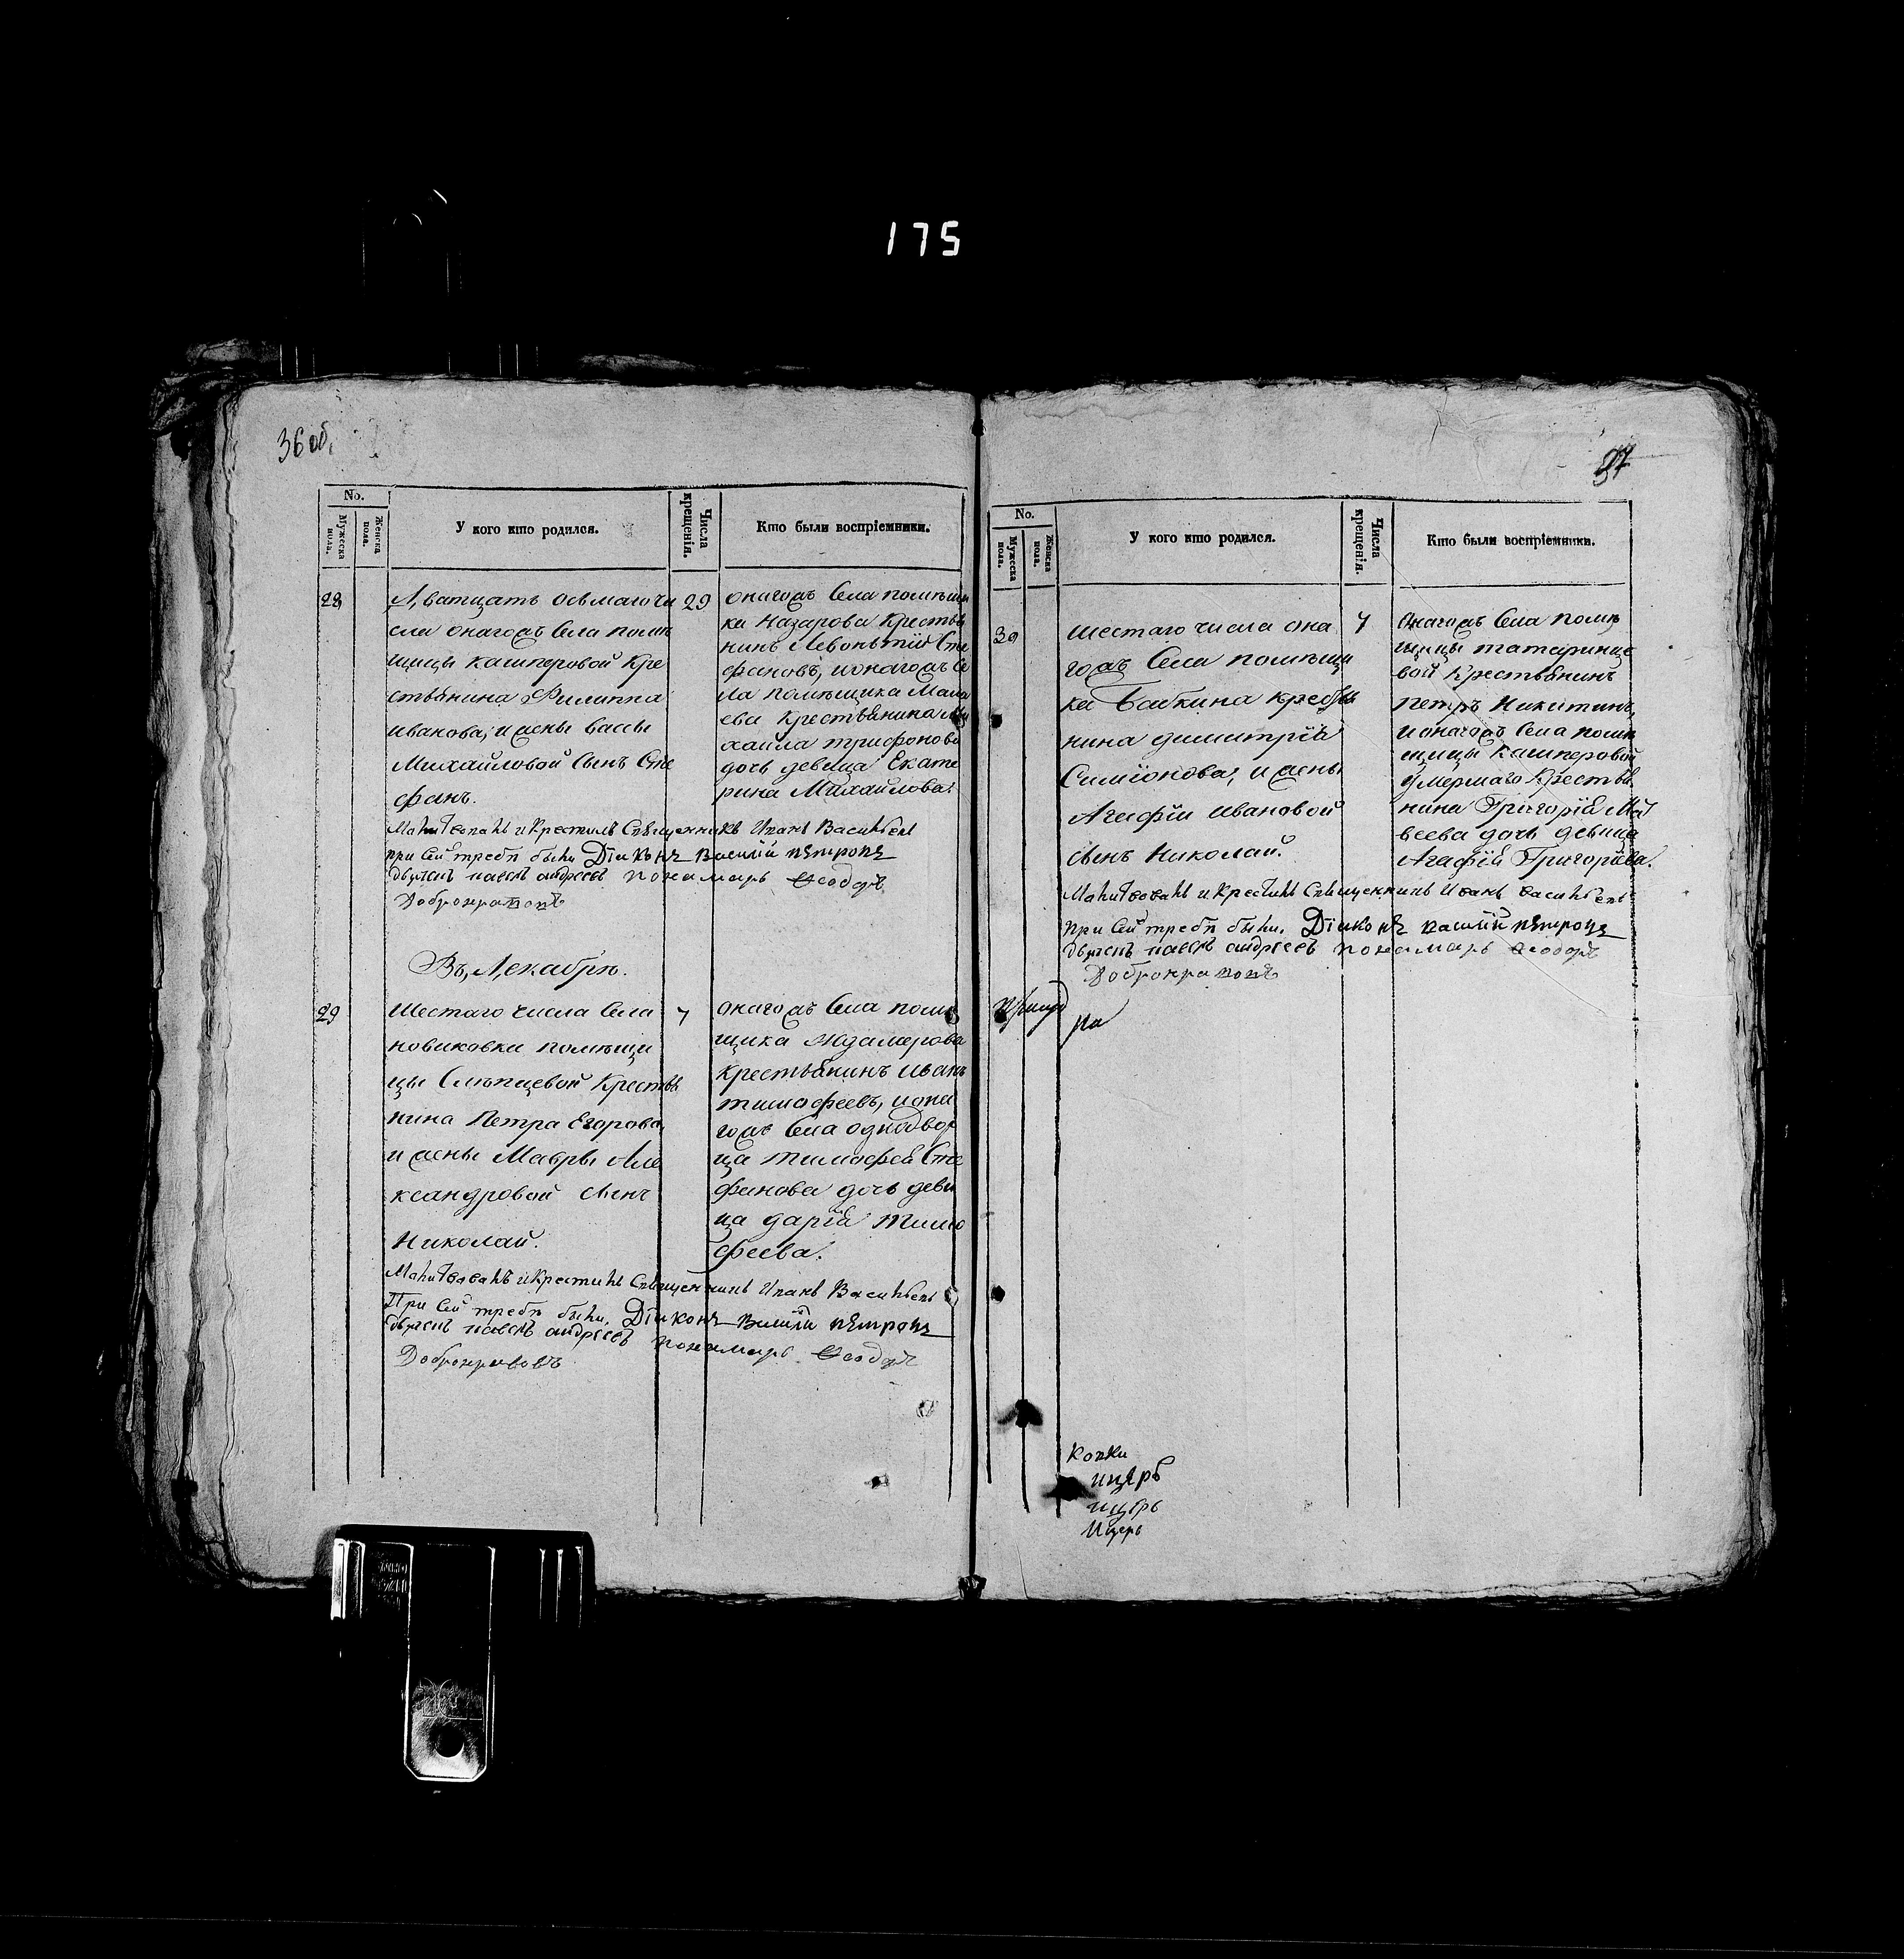 175
36 об.
No.
Мужеска пола.
Женска пола.
У кого кто родился.
Числа крещенія.
Кто были воспріемники.
28
Дватцать осьмаго чи
сла онагожъ села помѣ
щицы кашперовой кре
стьянина Филиппа
иванова, и жены вассы
Михайловой сынъ Сте
фанъ.
29
онагожъ села помѣщи
ка Назарова крестья
нинъ Левонтий Сте
фановъ, и онагожъ се
ла помѣщика Мама
ева крестьянина Ми
хаила трифонова
дочь девица Екате
рина Михайлова.
Молитвовалъ и крестилъ Священникъ Иванъ Васильевъ
при сей требѣ были Діаконъ Василий Петровъ
дьячекъ павелъ андреевъ пономарь Ѳеодоръ
Добронравовъ
Въ Декабрѣ.
29
Шестаго числа села
новиковки помѣщи
цы Слѣпцевой крестья
нина Петра Егорова,
и жены Мавры Але
ксандровой сынъ
Николай.
7
онагожъ села помѣ
щика
крестьянинъ иванъ
тимофеевъ, и она
гожъ села однодвор
ца тимофея Сте
фанова дочь деви
ца дарія тимо
феева.
Молитвовалъ и крестилъ Священникъ Иванъ Васильевъ
При сей требѣ были, Діаконъ Василий Петровъ
дьячекъ павелъ андреевъ пономарь Ѳеодоръ
Добронравовъ
37
No.
Мужеска пола.
Женска пола.
У кого кто родился.
Числа крещенія.
Кто были воспріемники.
30
шестаго числа она
гожъ села помѣщи
ка Бабкина крестья
нина димитрія
Симіонова, и жены
Агафіи ивановой
сынъ Николай.
7
онагожъ села помѣ
щицы татаринце
вой крестьянинъ
петръ Никитинъ,
и онагожъ села помѣ
щицы кашперовой
умершаго крестья
нина Григорія Мат
веева дочь девица
Агафія Григоріева.
Молитвовалъ и крестилъ Священникъ Иванъ Васильевъ
при сей требѣ были, Діаконъ василий Петровъ
дьячекъ павелъ андреевъ пономарь Ѳеодоръ
Добронравовъ
ра